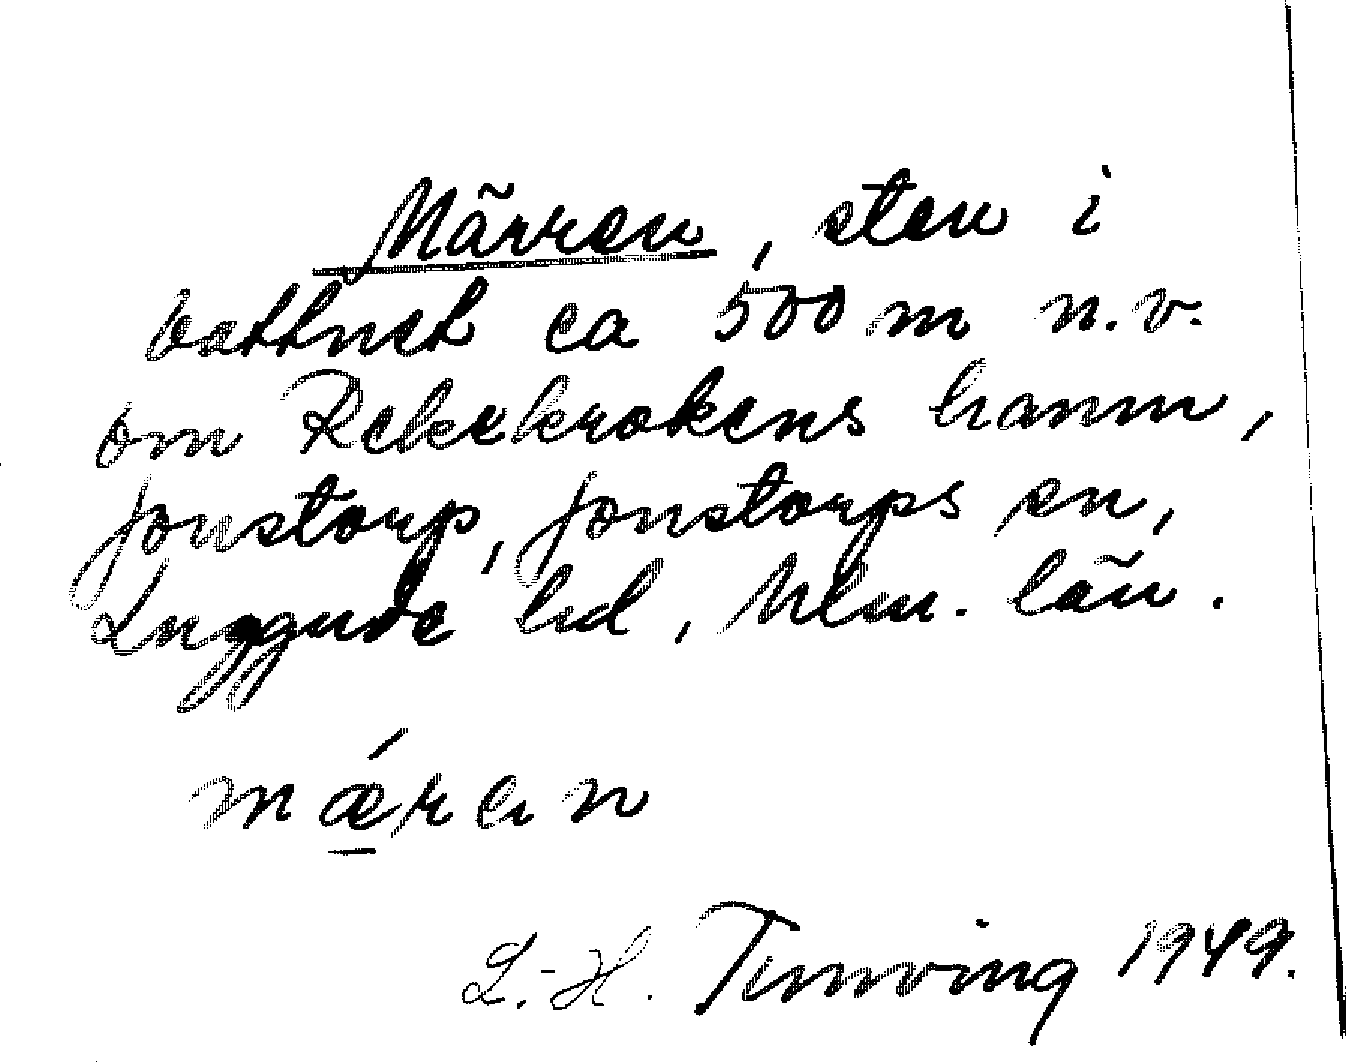 Märren, sten i
vattnet ca 500 m n.v.
om Rekekrokens hamn,
Jonstorp, Jonstorps sn,
Luggude hd, Mlm. län.
mǽren
L.-H. Tunving 1949.